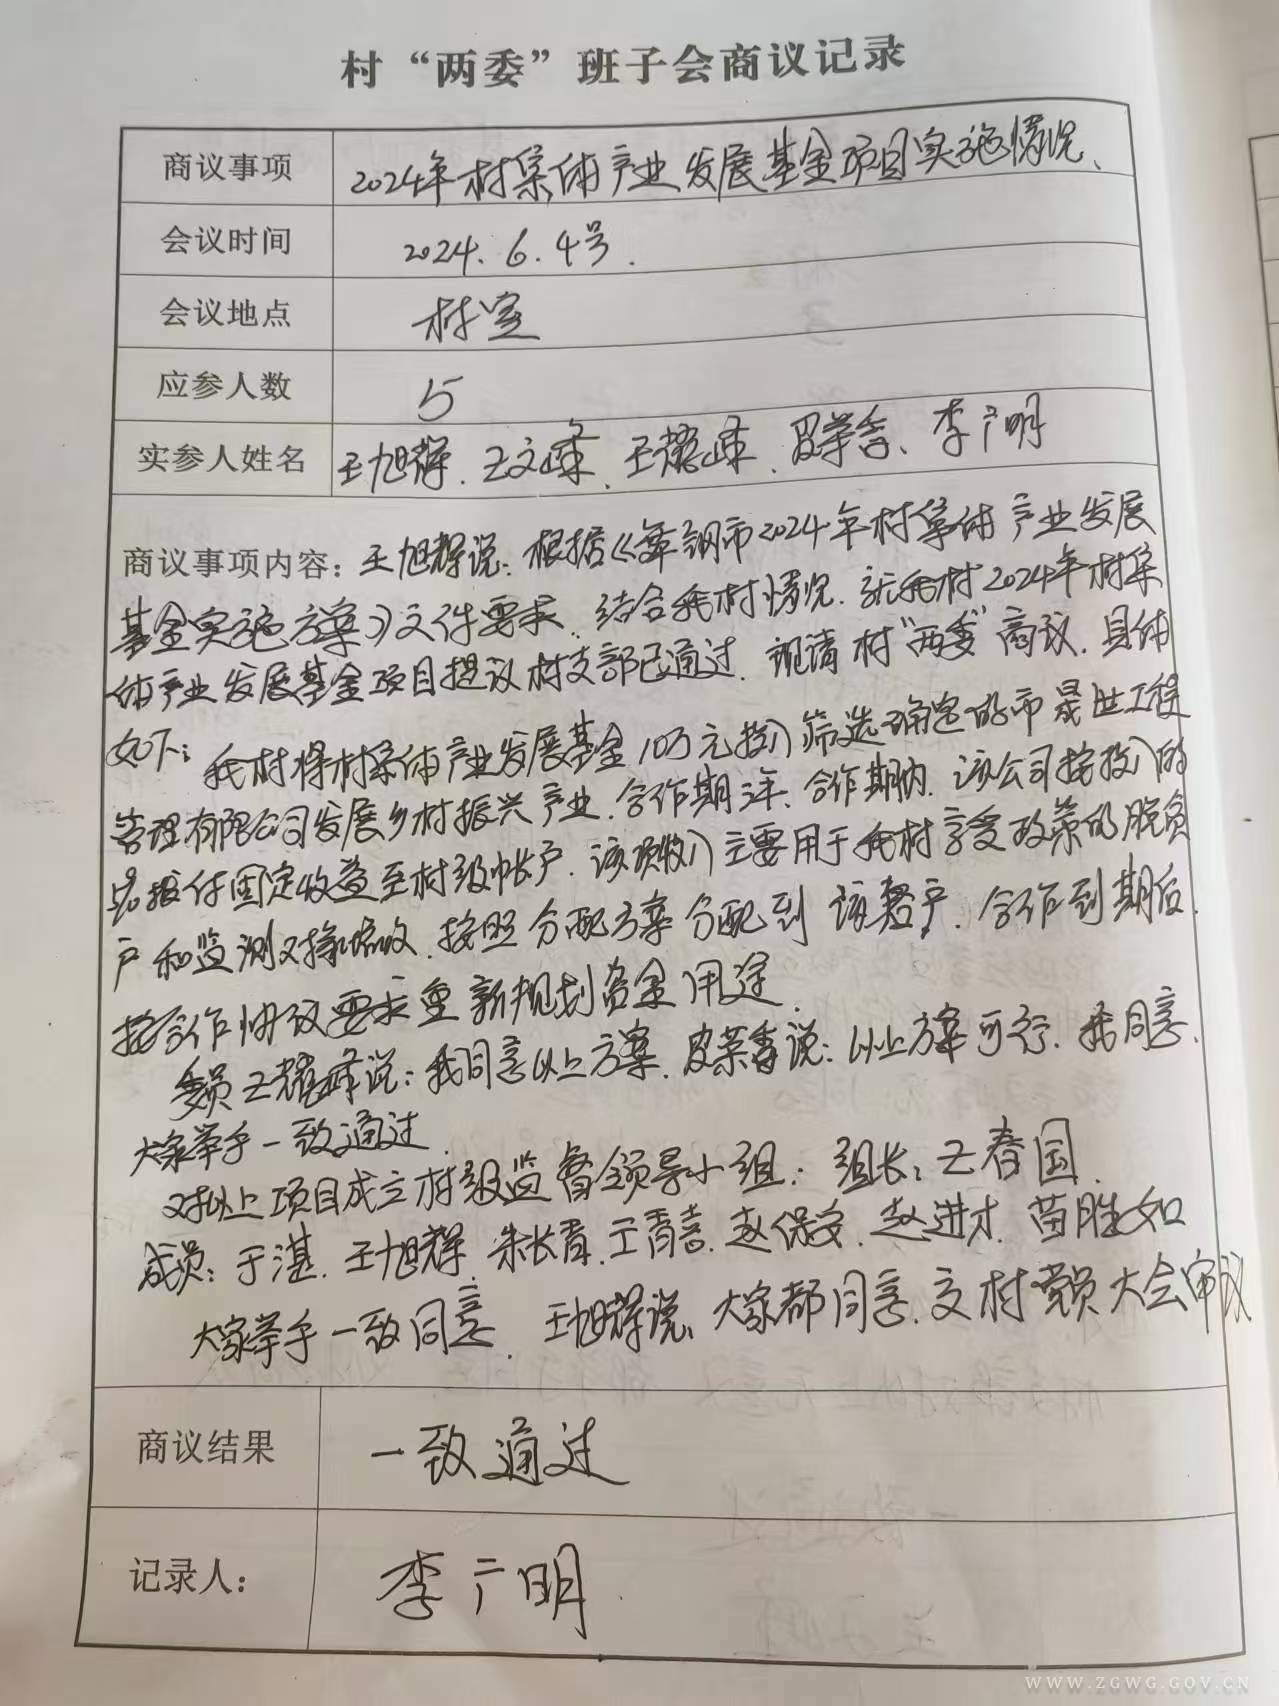 村“两委”班子会商议记录
商议事项 2024年村集体产业发展基金项目实施情况、
会议时间 2024.6.4号.
会议地点 村室
应参人数 5
实参人姓名 王旭辉、王文峰、王耀峰、皮荣香、李广明
商议事项内容：王旭辉说：根据《舞钢市2024年村集体产业发展
基金实施方案》文件要求、结合我村情况.就我村2024年村集
体产业发展基金项目提议村支部已通过.现请村“两委”商议.具体
如下：我村将村集体产业发展基金10万元投入筛选确定的市晟世工程
管理有限公司发展乡村振兴产业.合作期三年、合作期内.该公司按投入的
拨付固定收益至村级帐户.该项收入主要用于我村享受政策的脱贫
户和监测对象.按照分配方案分配到户.合作到期后.
按合作协议要求重新规划资金用途.
委员王耀峰说：我同意以上方案.皮荣香说：以上方案可行.我同意.
大家举手一致通过.
对以上项目成立村级监督领导小组：组长：王春国
成员：于湛.王旭辉.朱长青.王青喜.赵保安.赵进才.苗胜如
大家举手一致同意.王旭辉说、大家都同意.交村党员大会审议
商议结果 一致通过
记录人： 李广明.
WWW.ZGWG.GOV.CN